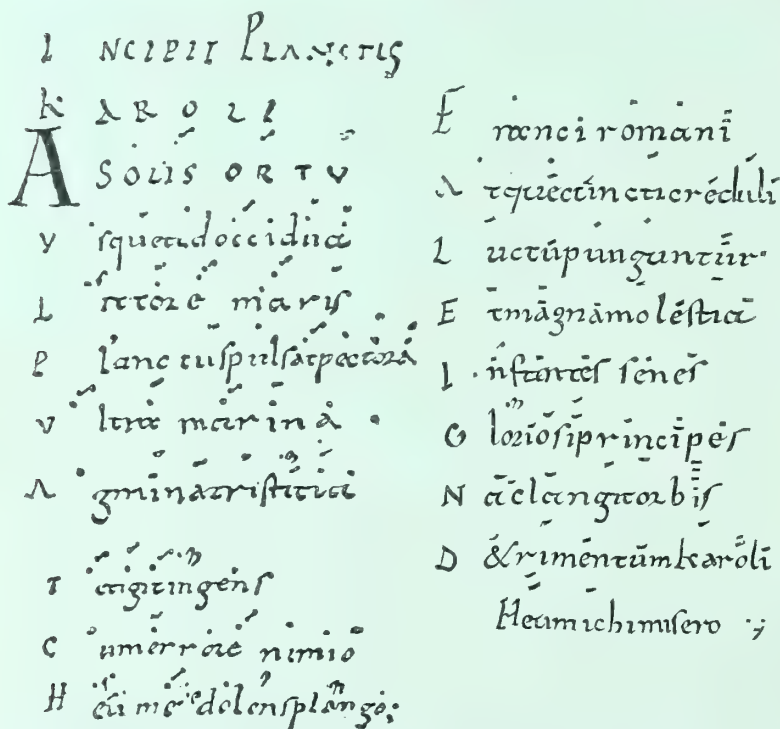 INCIPIT PLANCTUS
KAROLI
A SOLIS ORTV
Vsque ad occidua
Littore maris
Planctus pulsat pectora
Vltra marina
Agmina tristitia
Tetigit ingens
Cum errore nimio
Heu me dolens plango;
Franci romani
Atque cuncti creduli
Luctu punguntur·
Et magna molestia
Infantes senes
Gloriosi principes
Na clangit orbis
D&rimentum karoli
Heu michi misero ·;